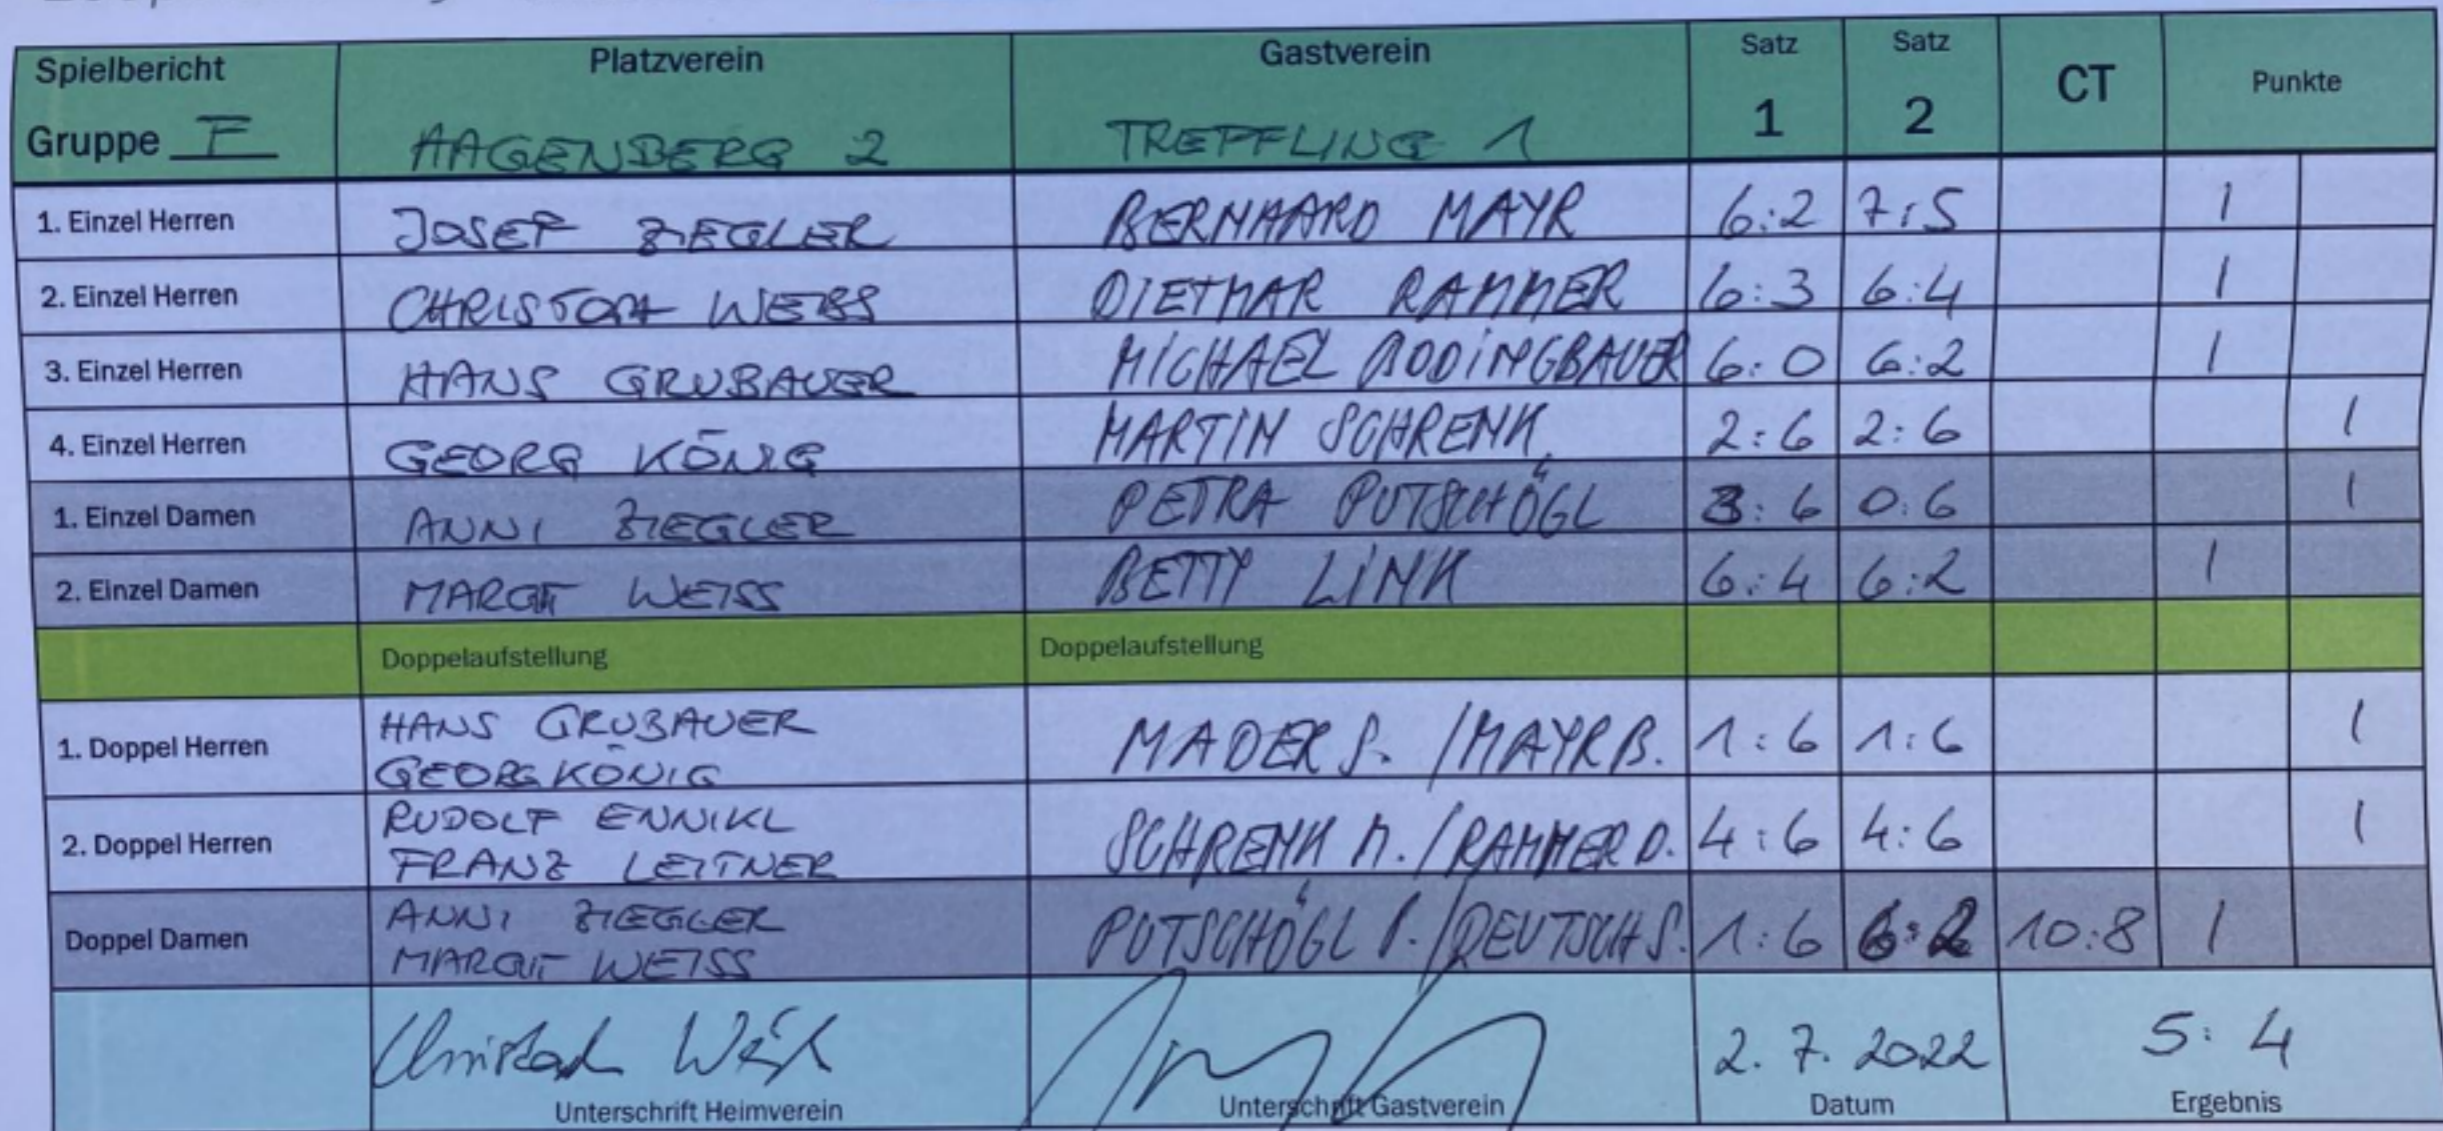 Spielbericht Platzverein Gastverein Satz Satz CT Punkte
Gruppe F HAGENBERG 2 TREFFLING 1 1 2
1. Einzel Herren JOSEF ZIEGLER BERNHARD MAYR 6:2 7:5 1
2. Einzel Herren CHRISTOPH WEISS DIETMAR RAMMER 6:3 6:4 1
3. Einzel Herren HANS GRUBAUER MICHAEL BODINGBAUER 6:0 6:2 1
4. Einzel Herren GEORG KÖNIG MARTIN SCHRENK 2:6 2:6 1
1. Einzel Damen ANNI ZIEGLER PETRA PUTSCHÖGL 3:6 0:6 1
2. Einzel Damen MARGIT WEISS BETTY LINK 6:4 6:2 1
Doppelaufstellung Doppelaufstellung
1. Doppel Herren HANS GRUBAUER
GEORG KÖNIG MADER S. / MAYR B. 1:6 1:6 1
2. Doppel Herren RUDOLF ENNIKL
FRANZ LEITNER SCHRENK M. / RAMMER D. 4:6 4:6 1
Doppel Damen ANNI ZIEGLER
MARGIT WEISS PUTSCHÖGL P. / DEUTSCH S. 1:6 6:2 10:8 1
Christoph Weiß 2. 7. 2022 5:4
Unterschrift Heimverein Unterschrift Gastverein Datum Ergebnis